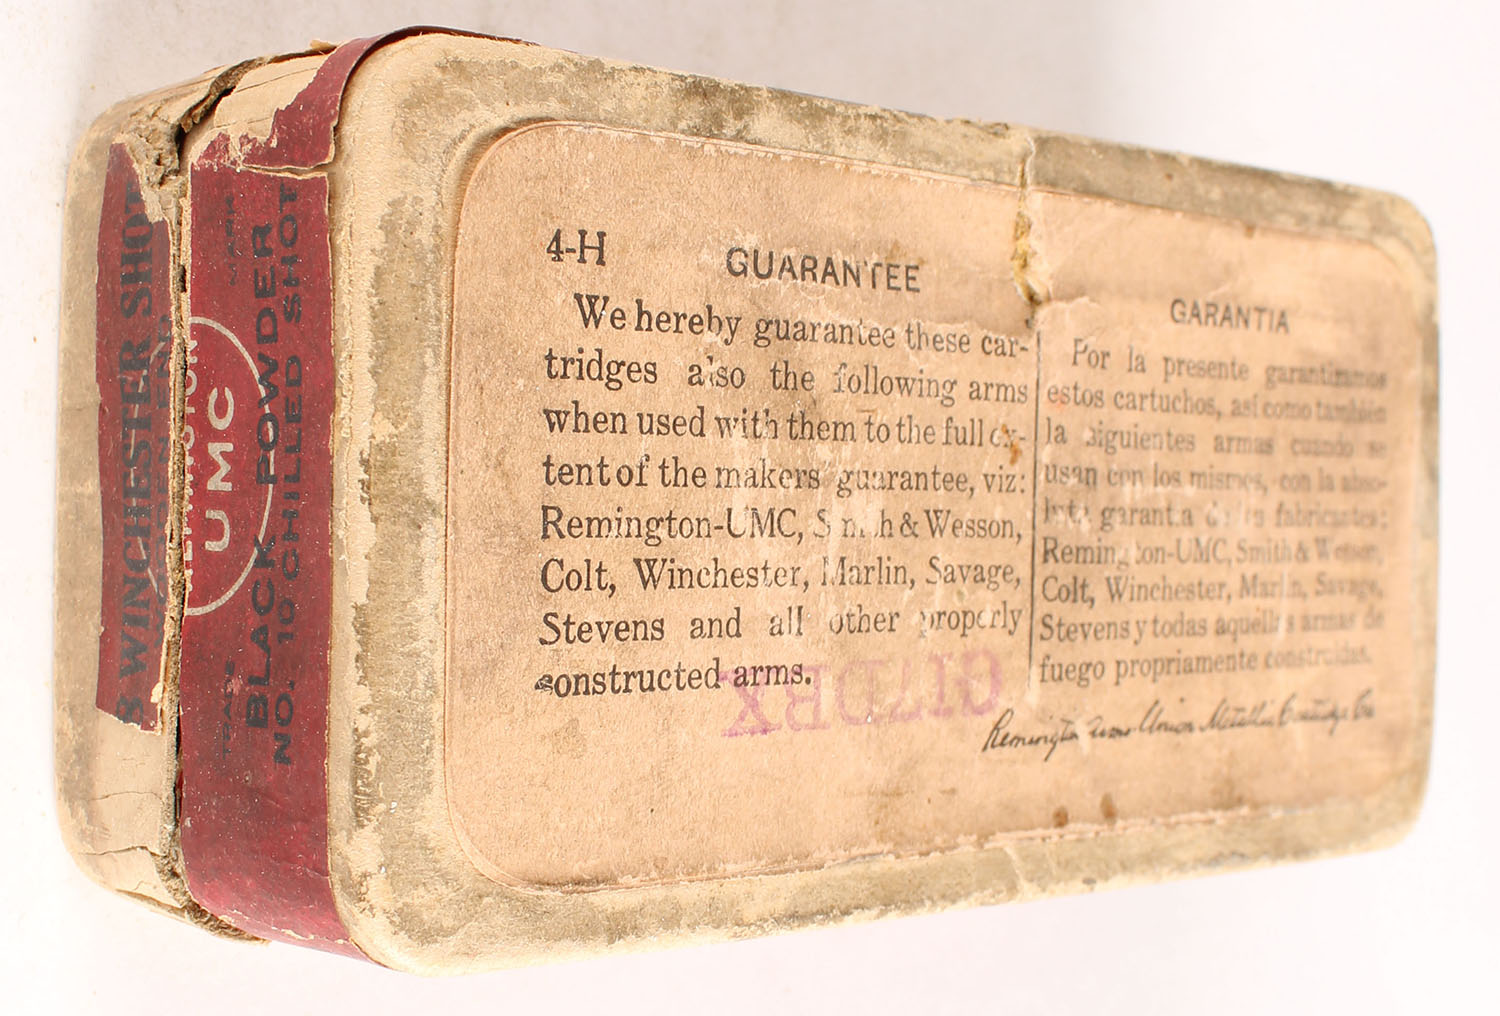 8 WINCHESTER SHOT
REMINGTON
UMC
TRADE MARK
BLACK POWDER
NO. 10 CHILLED SHOT
4-H
GUARANTEE
We hereby guarantee these car-
tridges also the following arms
when used with them to the full ex-
tent of the makers guarantee, viz:
Remington-UMC, Smith & Wesson,
Colt, Winchester, Marlin, Savage,
Stevens and all other properly
constructed arms.
GARANTIA
Por la presente garantizamos
estos cartuchos, así como también
la siguientes armas cuando se
usan con los mismos, con la abso-
luta garantia de los fabricantes:
Remington-UMC, Smith & Wesson,
Colt, Winchester, Marlin, Savage,
Stevens y todas aquellas armas de
fuego propriamente construidas.
Remington Arms-Union Metallic Cartridge Co.